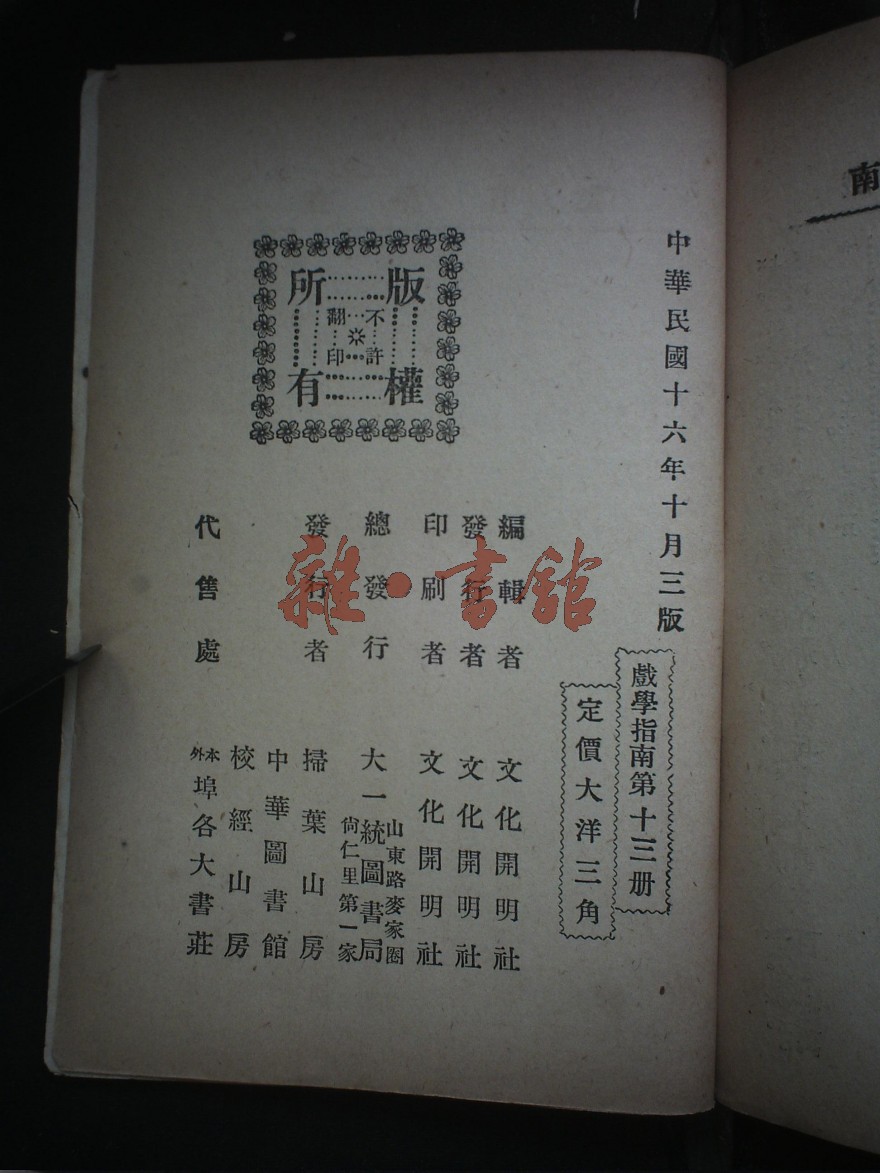 南
中華民國十六年十月三版
戲學指南第十三册
定價大洋三角
編輯者 文化開明社
發行者 文化開明社
印刷者 文化開明社
總發行 大一統圖書局
山東路麥家圈
尙仁里第一家
發行者 掃葉山房
中華圖書館
校經山房
代售處 本外埠各大書莊
版權所有
不許翻印
雜·書館